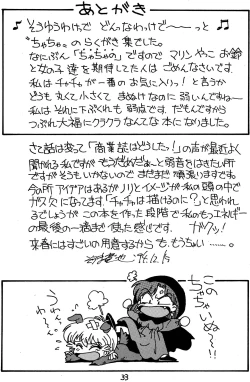 あとがき
♪そうゆうわけで どんなわけで〜〜っと♪
"ちゃちゃ"のらくがき集でした。
なにぶん「ちゃちゃの」ですので マリンやこ お鈴
と女の子達を期待してた人はごめんなさいです。
私はチャチャが一番のお気に入り!と言うか
どうも丸くて小さくて まぬけなのに弱いんですねー
私はそれにプラくれも 弱点です。だもんですから
っぷれ大福にクラクラなんてな本になりました。
さて話は変って「商業誌はどうした!」の声が最近よく
聞かれる私ですが もうだめだぁーと弱音をはきたい所
ですがそうもいかないので まだまだ頑張りますね。
今の所アイデアはあるがノリとイメージが私の頭の中
が欠になってます。「チャチャは描けるのに?」と思われ
るでしょうが この本を作った段階で私のもうエネルギー
の最後の一滴まで使った感じです。 ガクッ!
来春にはすごいの用意するから で、もうちょい……。
このちっちゃいぬ〜!!
うわ〜ん
33